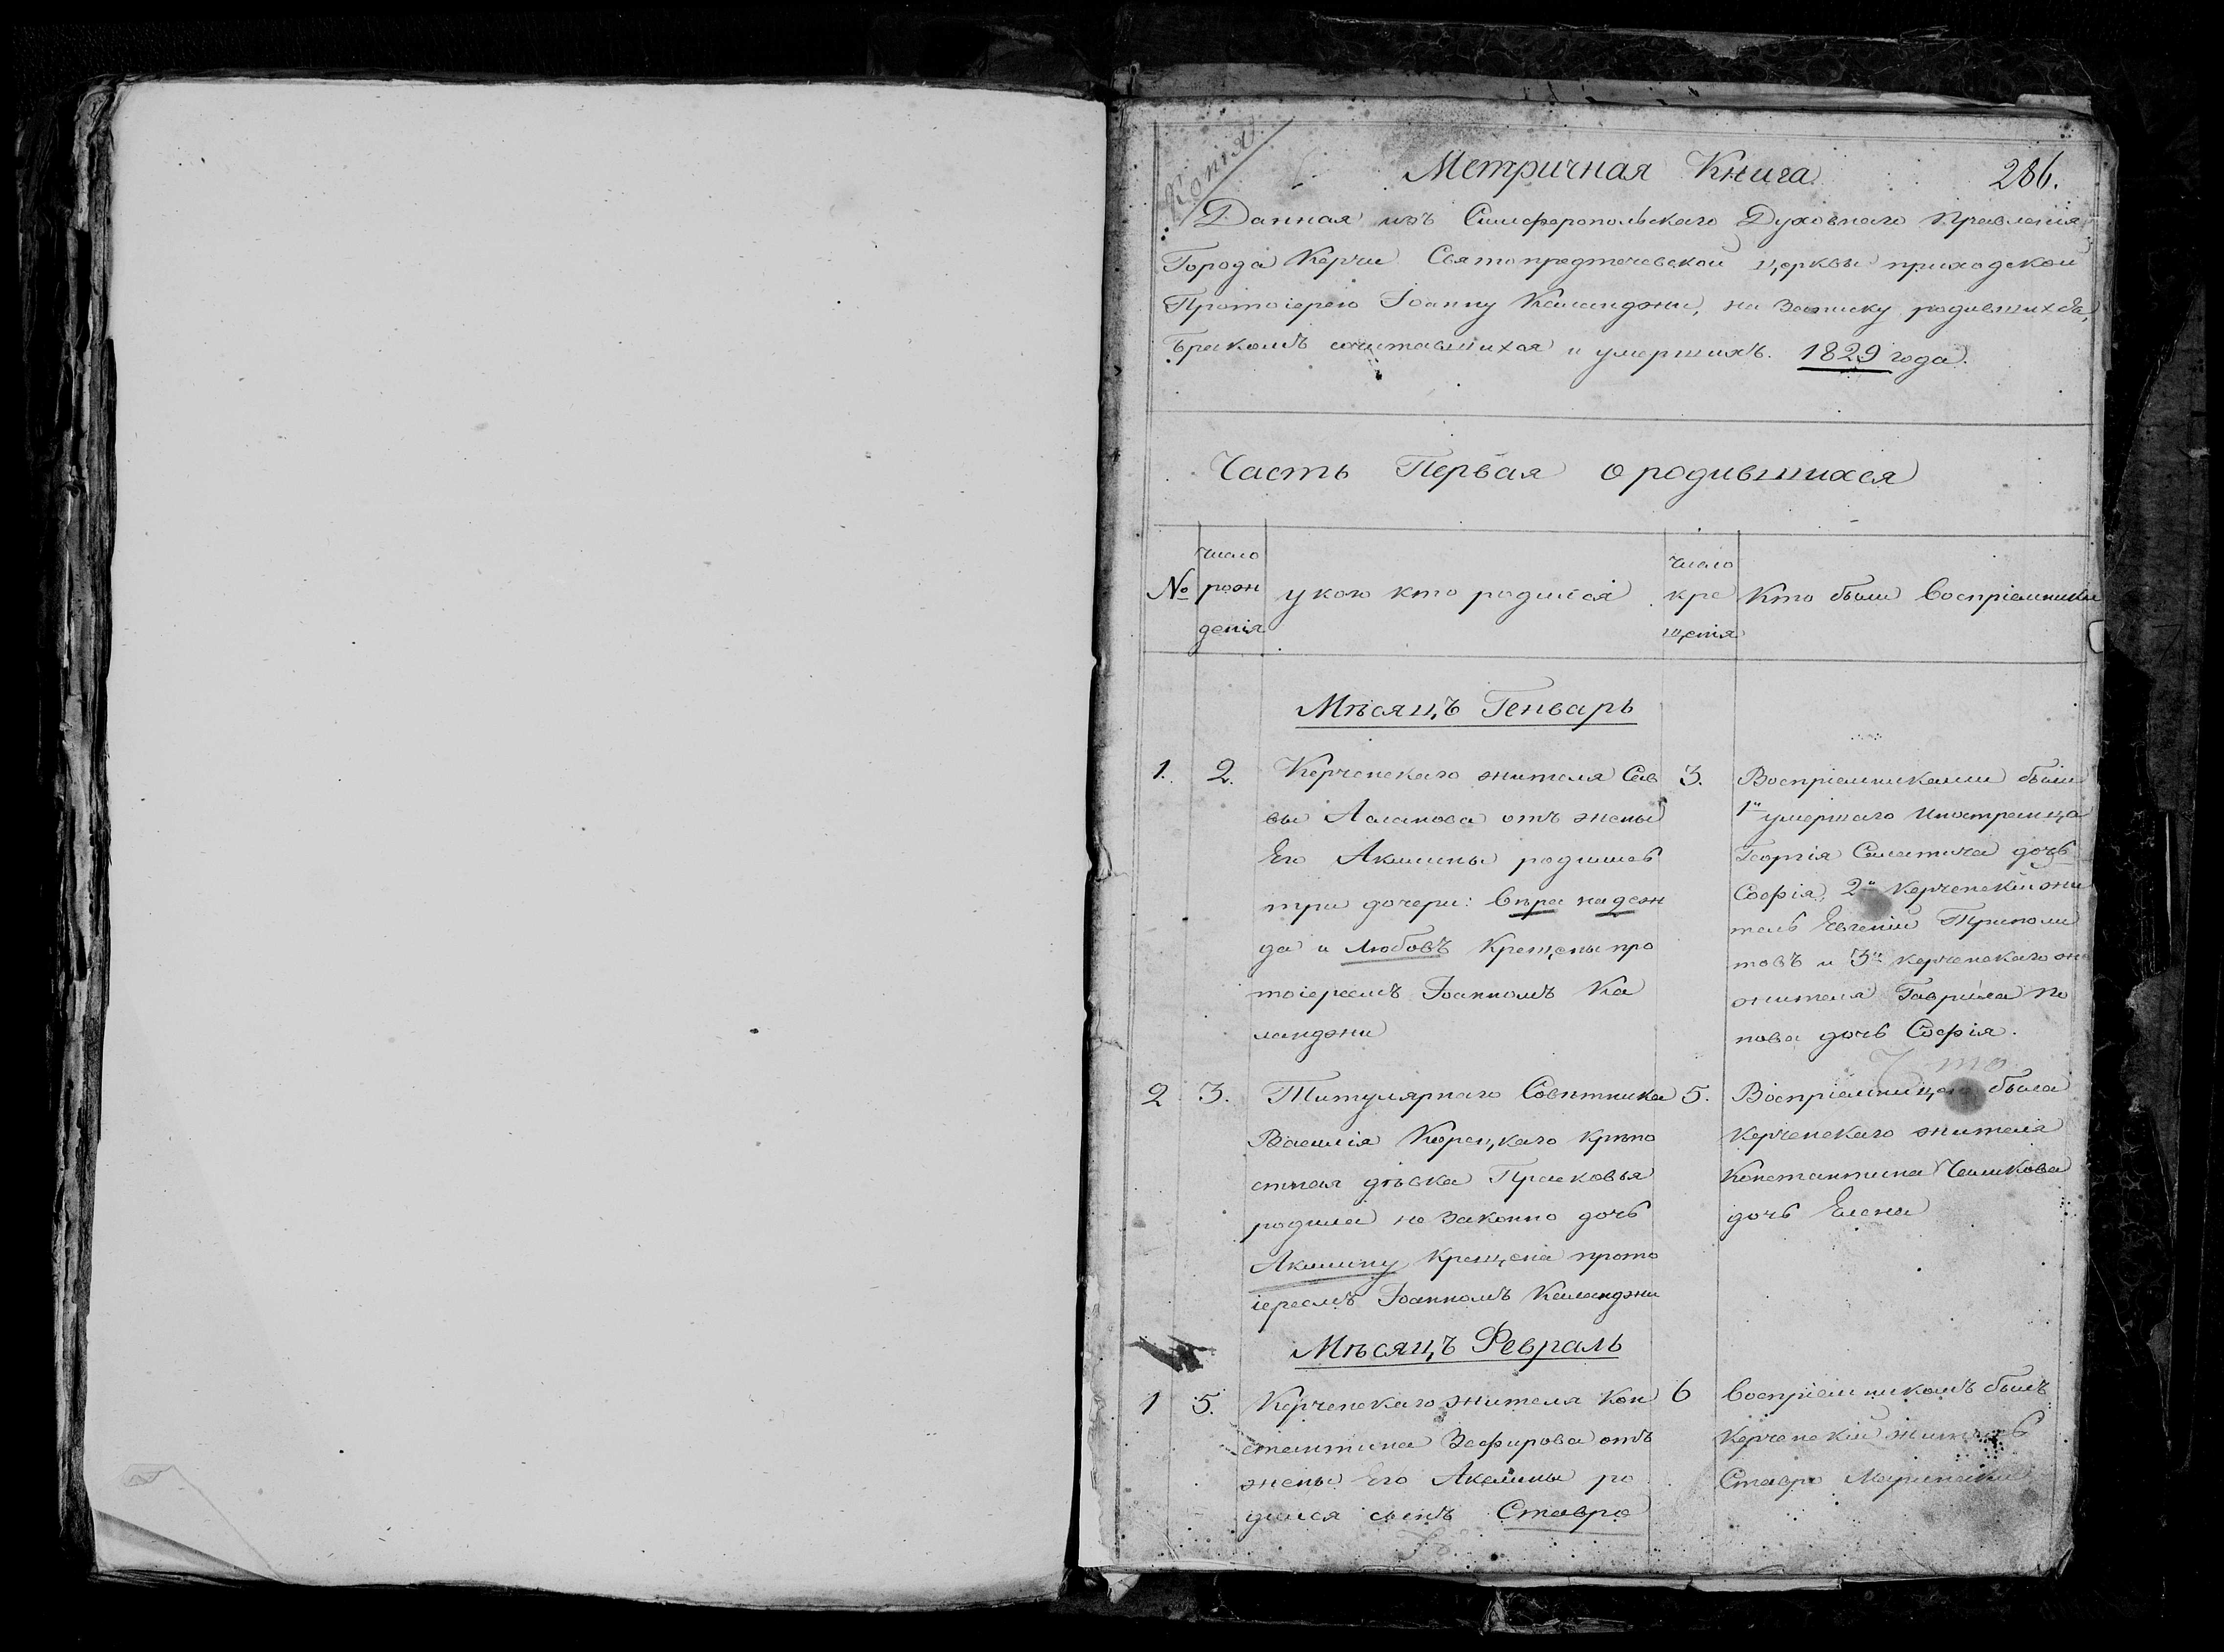 Копія
Метричная Книга
286.
Данная изъ Симферопольскаго Духовнаго Правленія
Города Керчи Святопредтечевской церквы приходской
Протоіерею Іоанну Каланджи, на записку родившихся,
бракомъ сочитавшихся и умершихъ. 1829 года.
Часть Первая о родившихся
№
число
рож
денія
у кого кто родился
число
кре
щенія
Кто были Воспріемники
Мѣсяцъ Генварь
1.
2.
Керченскаго жителя Сав
вы Асланова отъ жены
Его Акилины родились
три дочери: Вѣра надеж
да и Любовъ Крещены про
тоіереемъ Іоанномъ Ка
ланджи
3.
Воспріемниками были
1я умершаго Иностранца
Георгія дочь
Софія, 2й Керченскій жи
тель Евгеній Триполи
товъ и 3я керченскаго
жителя Гавріила По
пова дочь Софія.
2
3.
Титулярнаго Совѣтника
Василія Корецкаго крѣпо
стная дѣвка Прасковья
родила не законно дочь
Акилину Крещена прото
іереемъ Іоанномъ Каланджи
5.
Воспріемницею была
Керченскаго жителя
Константина Чаликова
дочь Елена
Мѣсяцъ Февраль
1
5.
Керченскаго жителя Кон
стантина Зафирова отъ
жены Его Акилины ро
дился сынъ Ставро
6
Воспріемникомъ былъ
Керченскій житель
Ставро